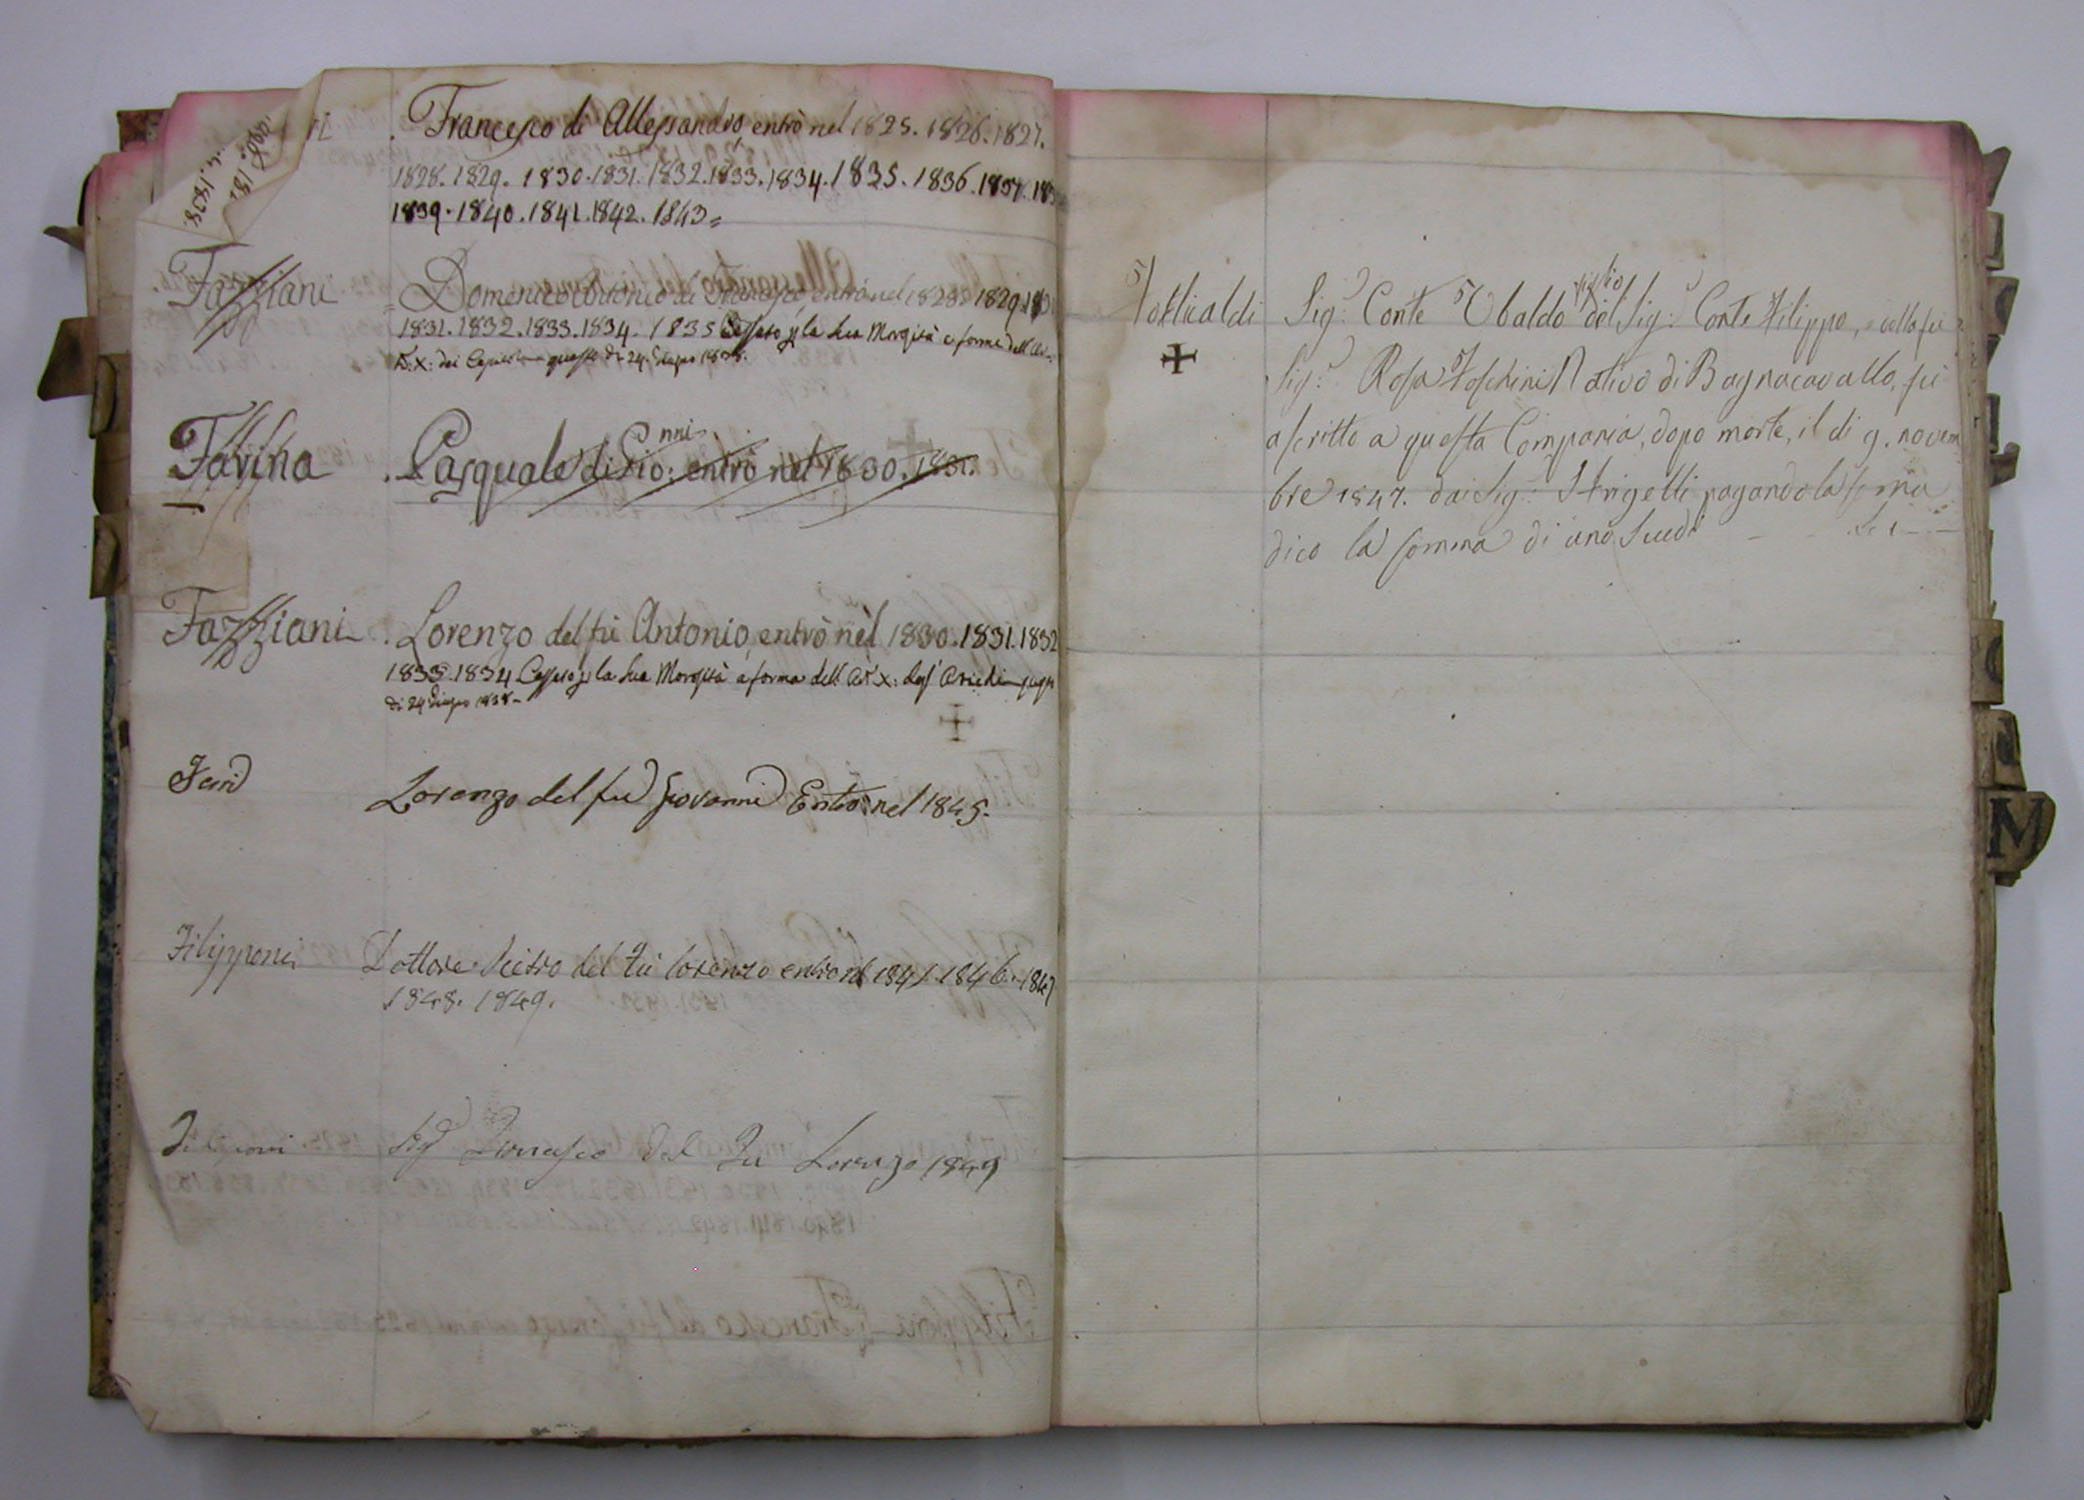 Francesco di Allessandro, entrò nel 1825. 1826. 1827.
1828. 1829. 1830. 1831. 1832. 1833. 1834. 1835. 1836. 1837.
1839. 1840. 1841. 1842. 1843
Fazziani Domenico Antonio di Francesco entrò nel 1828. 1829.
1831. 1832. 1833. 1834. 1835 Cassato p la sua Morosità a forma dell
X: dei Capitoli questo dì 24. Giugno 1838.
nni
Farina . Pasquale di Gio: entrò nel 1830. 1831.
Fazziani . Lorenzo del fù Antonio, entrò nèl 1830. 1831. 1832
1833. 1834 Cassato p la sua Morosità a forma dell Art. X:
di 24 Giugno 1838
Lorenzo del fu Giovanni Entrò nel 1845.
Filipponi Dottore Pietro del fù Lorenzo entrò nel 1841. 1846. 1847
1848. 1849.
Sig Francesco Del Fu Lorenzo 1849
figlio
Sig: Conte Ubaldo del Sig: Conte Filippo, e della fù
Sig: Rosa Foschini Nativo di Bagnacavallo, fù
ascritto a questa Compania, dopo morte, il dì 9. novem
bre 1847. dai Sig: Strigelli pagando la
dico la somma di uno Scudo
M